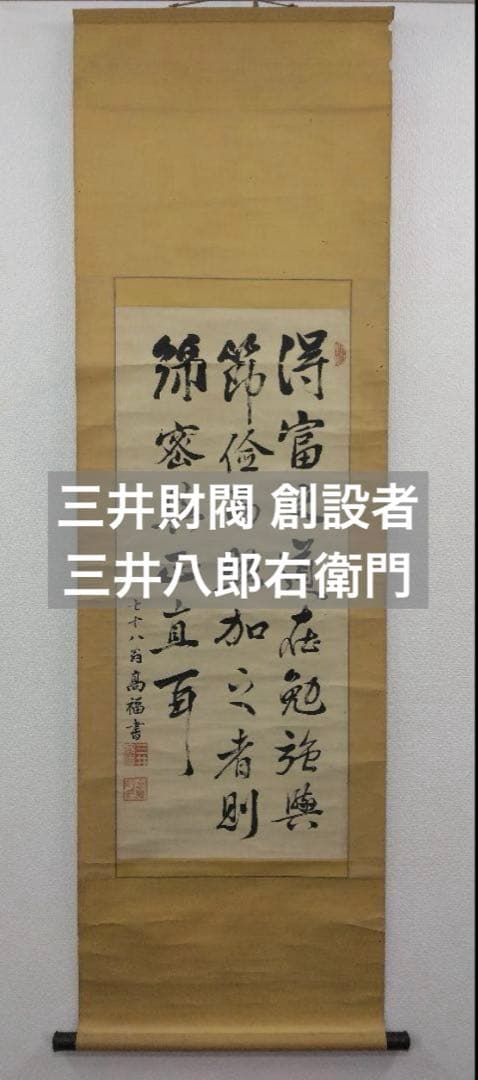 三井財閥 創設者
三井八郎右衛門
得富之道在勉強與
節儉加之者則
綿密正直耳
七十八翁高福書